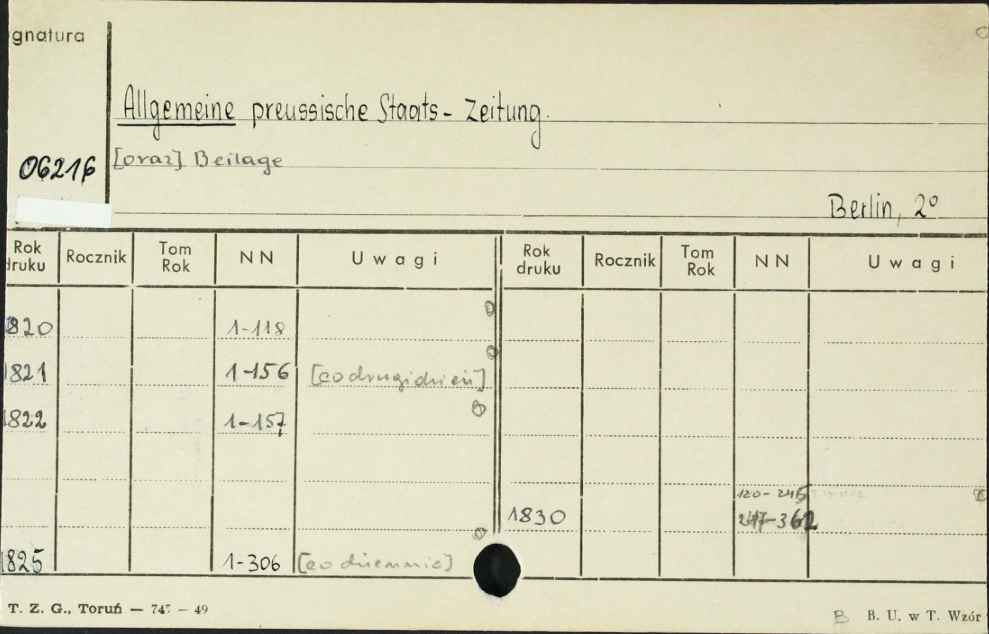 gnatura
Allgemeine preussische Staats-Zeitung.
06216 [oraz] Beilage
Berlin, 2°
Rok druku Rocznik Tom Rok NN Uwagi Rok druku Rocznik Tom Rok NN Uwagi
1820 1-118
1821 1-156 [co drugi dzień]
1822 1-157
120-245
1830 247-362
1825 1-306 [co dziennie]
T. Z. G., Toruń — 747 — 49
B B. U. w T. Wzór